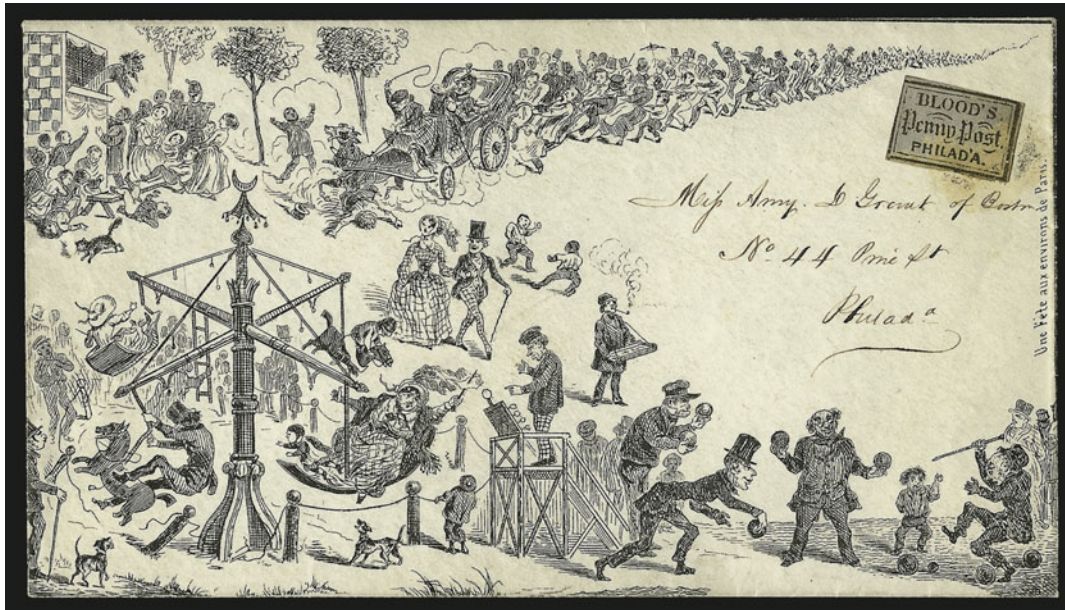 BLOOD'S
Penny Post,
PHILAD'A.
Miss Amy. D of
No 44 Pine St
Philada
Une Fête aux environs de Paris.